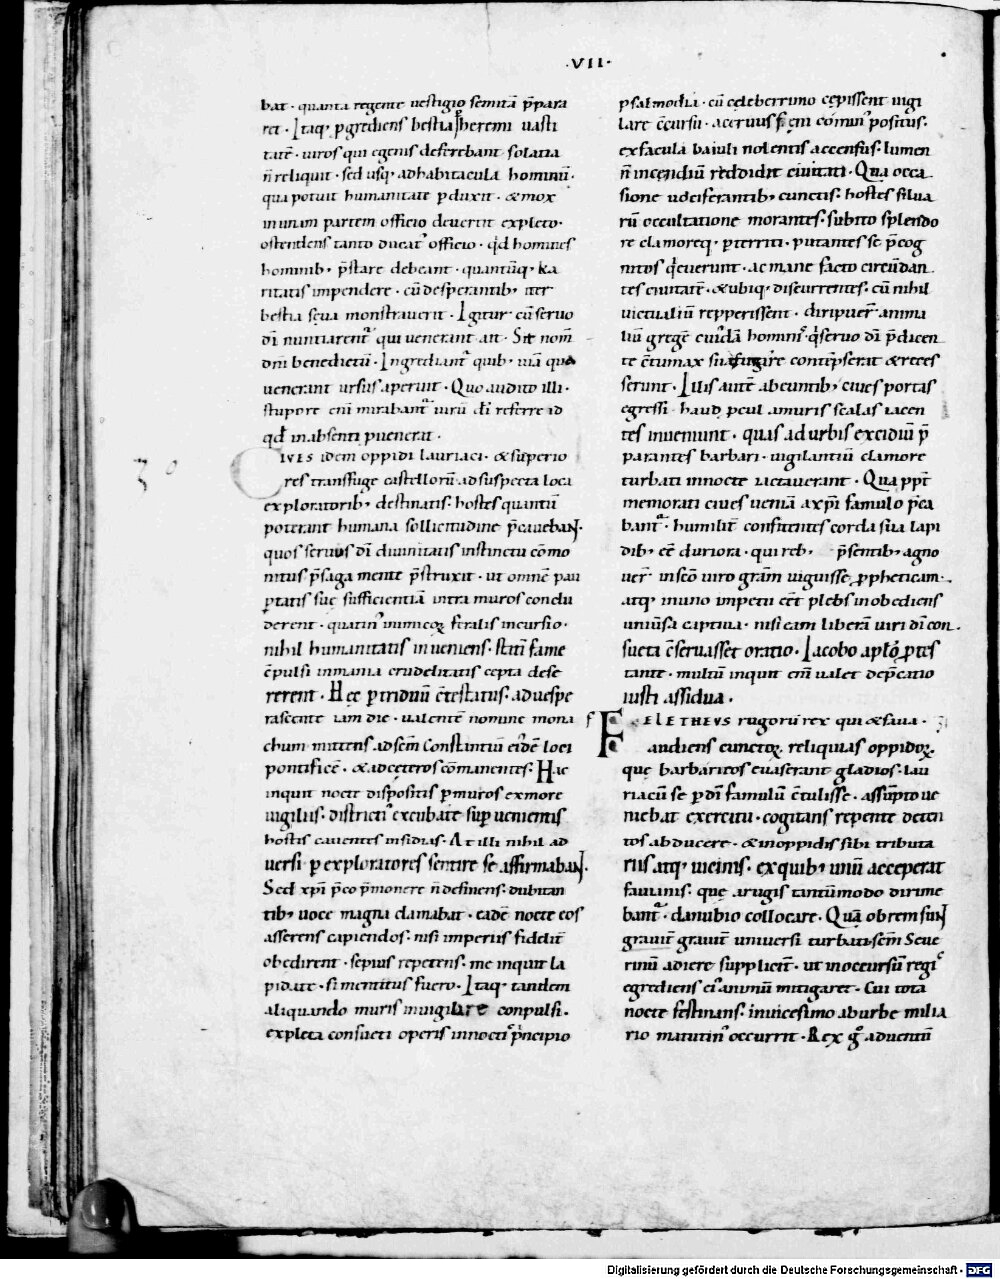 ·VII·
bat · quanta regente uestigio semitā p̄para
ret · Itaq; p̄grediens bestia heremi uasti
tatē · uiros qui egenis deferebant solatia
n̄ reliquit · sed usq; ad habitacula hominū ·
qua potuit humanitate pduxit · & mox
in unam partem officio deuertit expleto ·
ostendens tanto ducat᾽ officio · qd̄ homines
hominib; p̄stare debeant · quantūq; ka
ritatis impendere · cū desperantib; iter
bestia seua monstrauerit · Igitur cū seruo
dī nuntiarent᾽ qui uenerant ait · Sit nom̄
dn̄i benedictū · Ingrediant᾽ quib; uiā qua
uenerant ursus aperuit · Quo audito illi ·
stupore eni mirabant᾽ uirū dī referre id
qd̄ in absenti puenerat ·
CIVES idem oppidi lauriaci · & superio
res transfuge castellorū ad suspecta loca
exploratorib; destinatis · hostes quantū
poterant humana sollicitudine p̄cauebant ·
quos seruus dī diuinitatis instinctu cōmo
nitus p̄saga mente p̄struxit · ut omnē pau
ptatis suę sufficientiā intra muros conclu
derent · quatin᾽ inimicoꝝ feralis incursio ·
nihil humanitatis inueniens · statī fame
cōpulsi inmania crudelitatis cepta dese
rerent · Hęc p triduū cōtestatus · aduespe
rascente iam die · ualentē nomine mona
chum mittens ad scm̄ Constantiū eidē loci
pontificē · & ad cęteros cōmanentes · Hac
inquit nocte dispositis p muros ex more
uigiliis · districti᾽ excubate supuenientis
hostis cauentes insidias · At illi nihil ad
uersi p exploratores sentire se affirmabant ·
Sed xp̄i p̄co p̄monere n̄ desinens · dubitan
tib; uoce magna clamabat · eadē nocte eos
asserens capiendos · nisi imperiis fidelit̄
obedirent · sepius repetens · me inquit la
pidate · si mentitus fuero · Itaq; tandem
aliquando muris inuigilare conpulsi ·
expleta consueti operis in nocti᾽ p̄ncipio
psalmodia · cū celeberrimo cępissent uigi
lare cōcursu · aceruus fęni comin᾽ positus ·
ex facula baiuli nolentis accensus · lumen
n̄ incendiū reddidit ciuitati · Qua occa
sione uociferantib; cunctis · hostes silua
rū occultatione morantes · subito splendo
re clamoreq; pterriti · putantes se p̄cog
nitos q̇euerunt · ac mane facto circūdan
tes ciuitatē · & ubiq; discurrentes · cū nihil
uictualiū repperissent · diripuer̄ anima
liū gregē cui᾽dā homini᾽ · q̇ seruo dī p̄dicen
te cōtumax sua fugare contēpserat & reces
serunt · Illis autē abeuntib; ciues portas
egressi · haud pcul a muris scalas iacen
tes inuenuunt · quas ad urbis excidiū p̄
parantes barbari · uigilantiū clamore
turbati in nocte iactauerant · Qua ppt̄
memorati ciues ueniā a xp̄i famulo p̄ca
bant᾽ · humilit̄ confitentes corda sua lapi
dib; eē duriora · qui reb; p̄sentib; agno
uer̄ in scō uiro gratm̄ uiguisse ppheticam ·
atq; in uno impetu eēt plebs inobediens
uniūsa captiua · nisi eam liberā uiri dī con
sueta cōseruasset oratio · Iacobo aplō p̄tes
tante · multū inquit eni ualet dep̄catio
iusti assidua ·
FELETHEVS rugorū rex qui & faua ·
audiens cunctoꝝ reliquias oppidoꝝ
quę barbaricos euaserant gladios · lau
riacū se p dī famulū cōtulisse · assūpto ue
niebat exercitu · cogitans repente deten
tos abducere · & in oppidis sibi tributa
riis atq; uicinis · ex quib; unū acceperat
fauianis · que a rugis tantūmodo dirime
bant᾽ danubio collocare · Quā ob rem sunt
grauit̄ grauit̄ uniuersi turbati scm̄ Seue
rinū adiere supplicit̄ · ut in occursū regi᾽
egrediens ei᾽ animū mitigaret · Cui tota
nocte festinans · in uicesimo ab urbe milia
rio matutin᾽ occurrit · Rex g᾽ aduentū
Digitalisierung gefördert durch die Deutsche Forschungsgemeinschaft - DFG